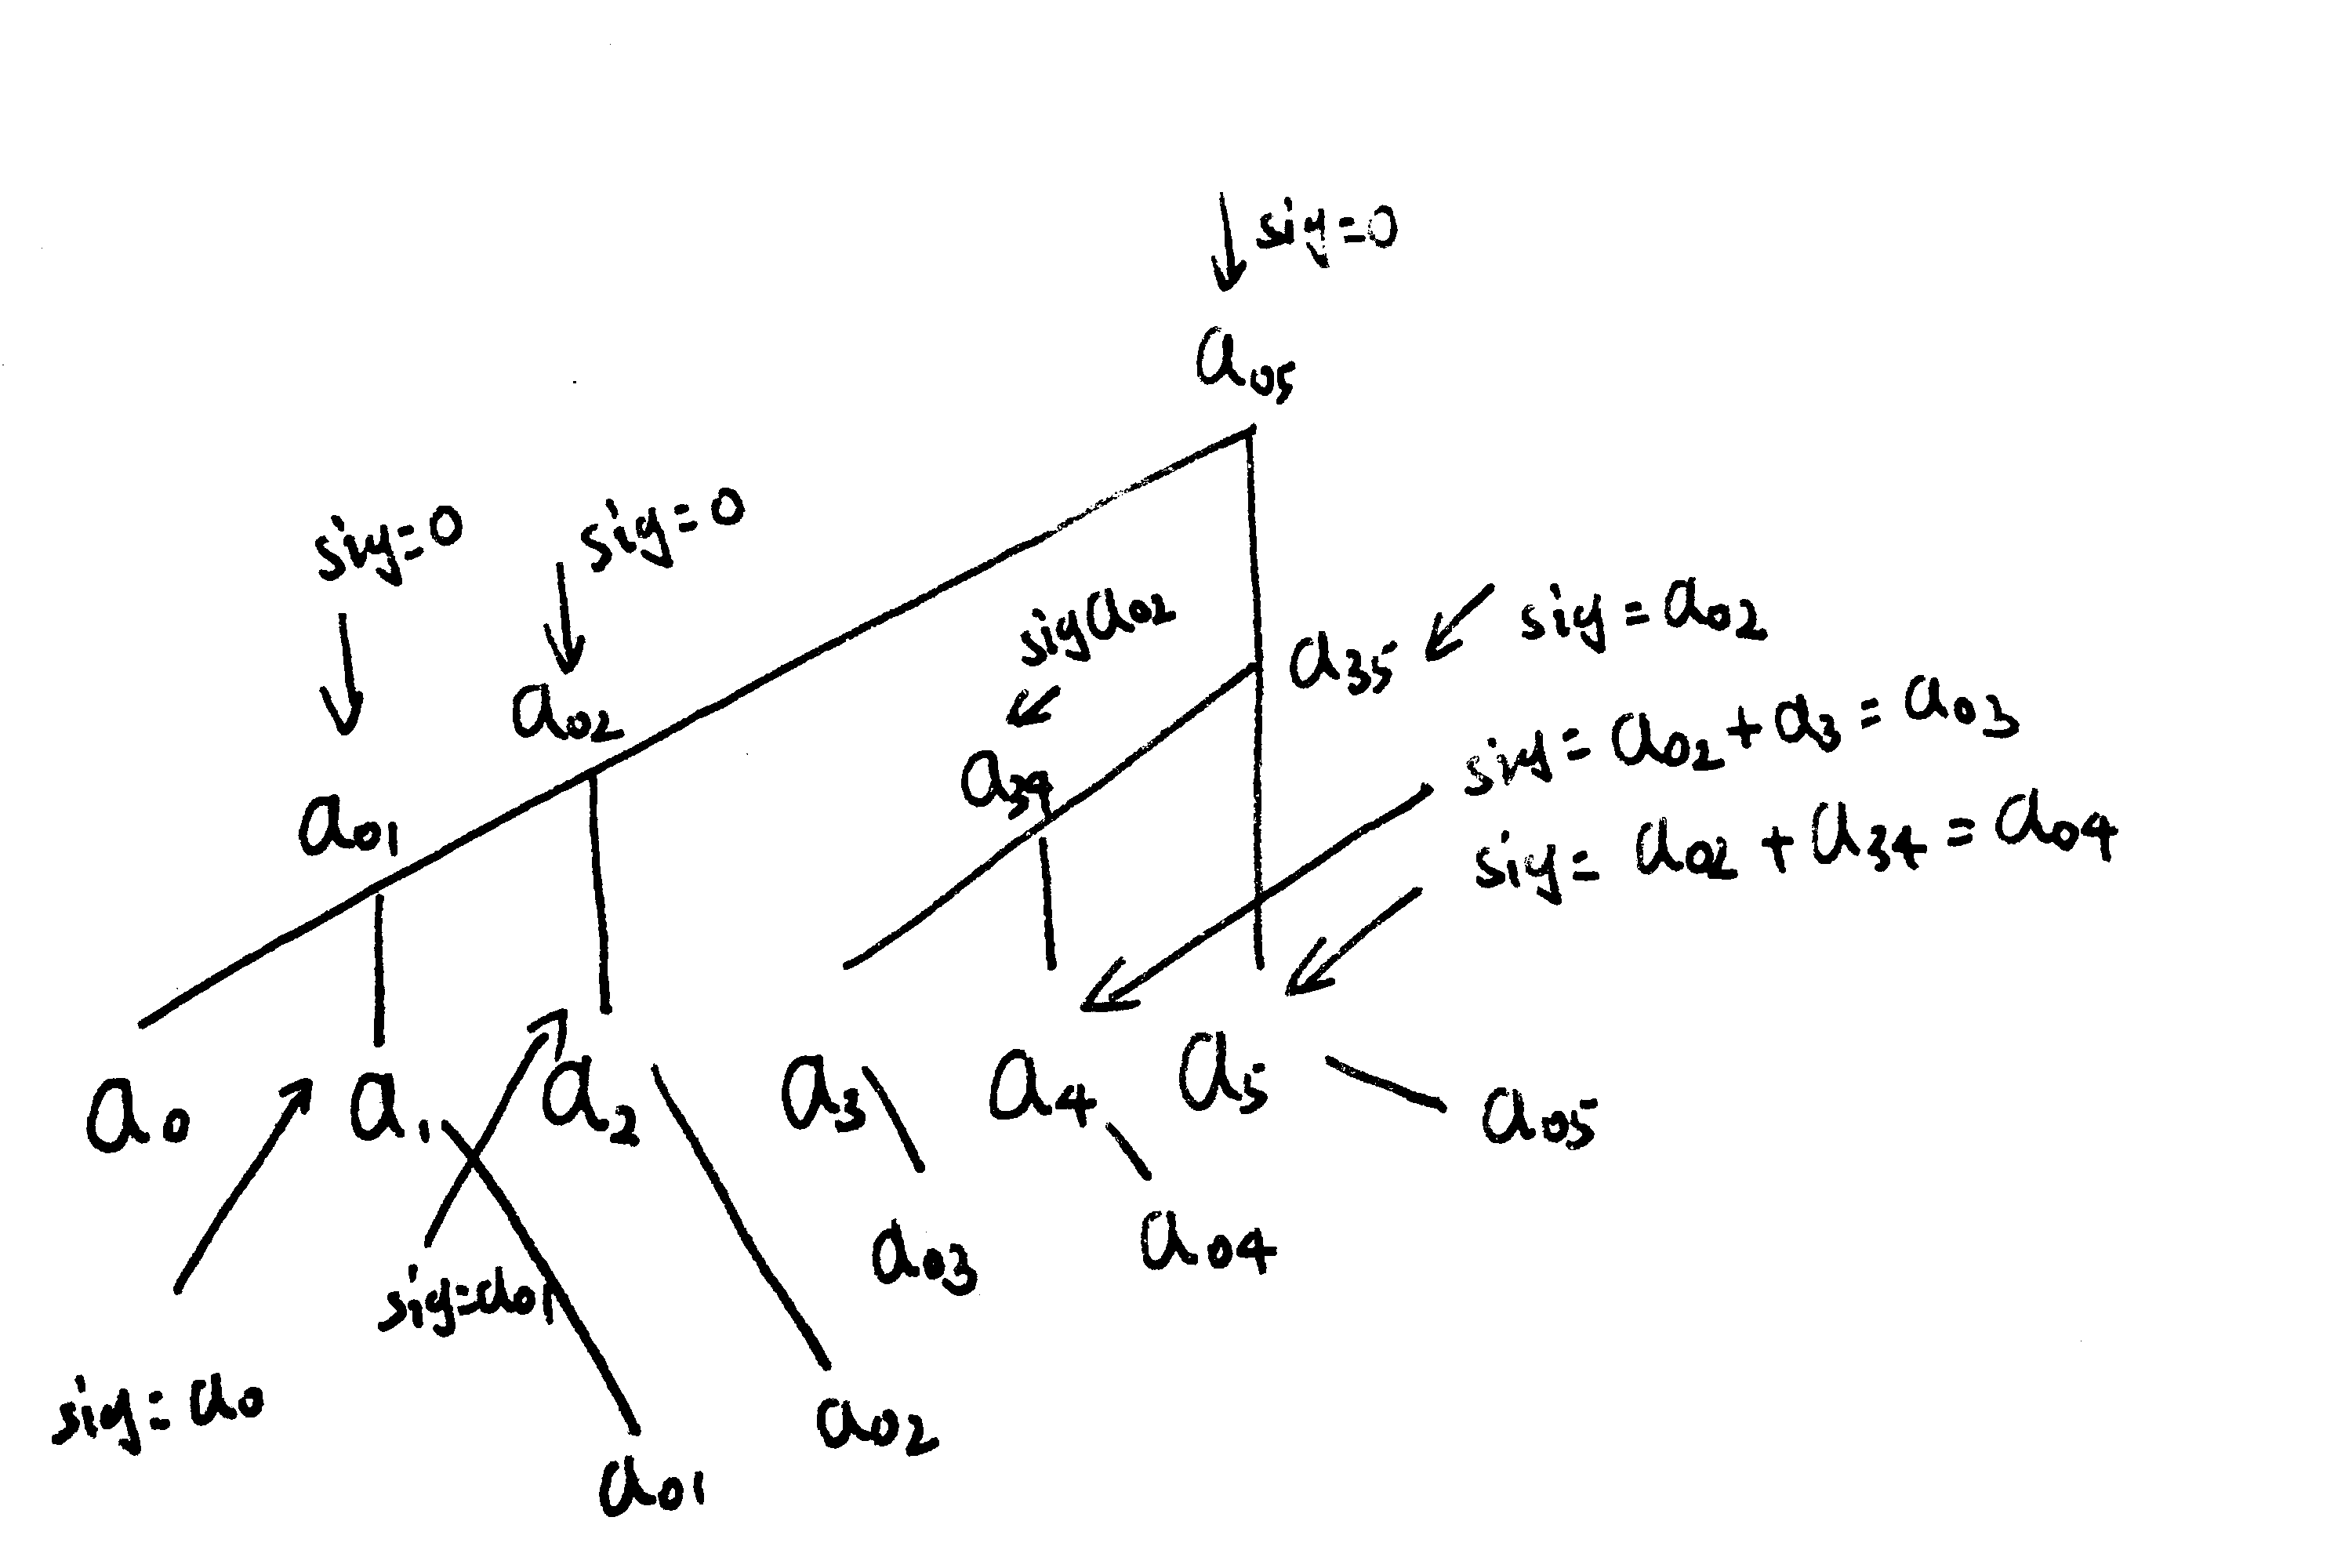 sig=0
a05
sig=0
sig=0
sig=a02
siga02
a35
a02
sig=a02+a3=a03
a34
a01
sig=a02+a34=a04
a0
a1
a2
a3
a4
a5
a05
a03
a04
sig=a01
sig=a0
a02
a01